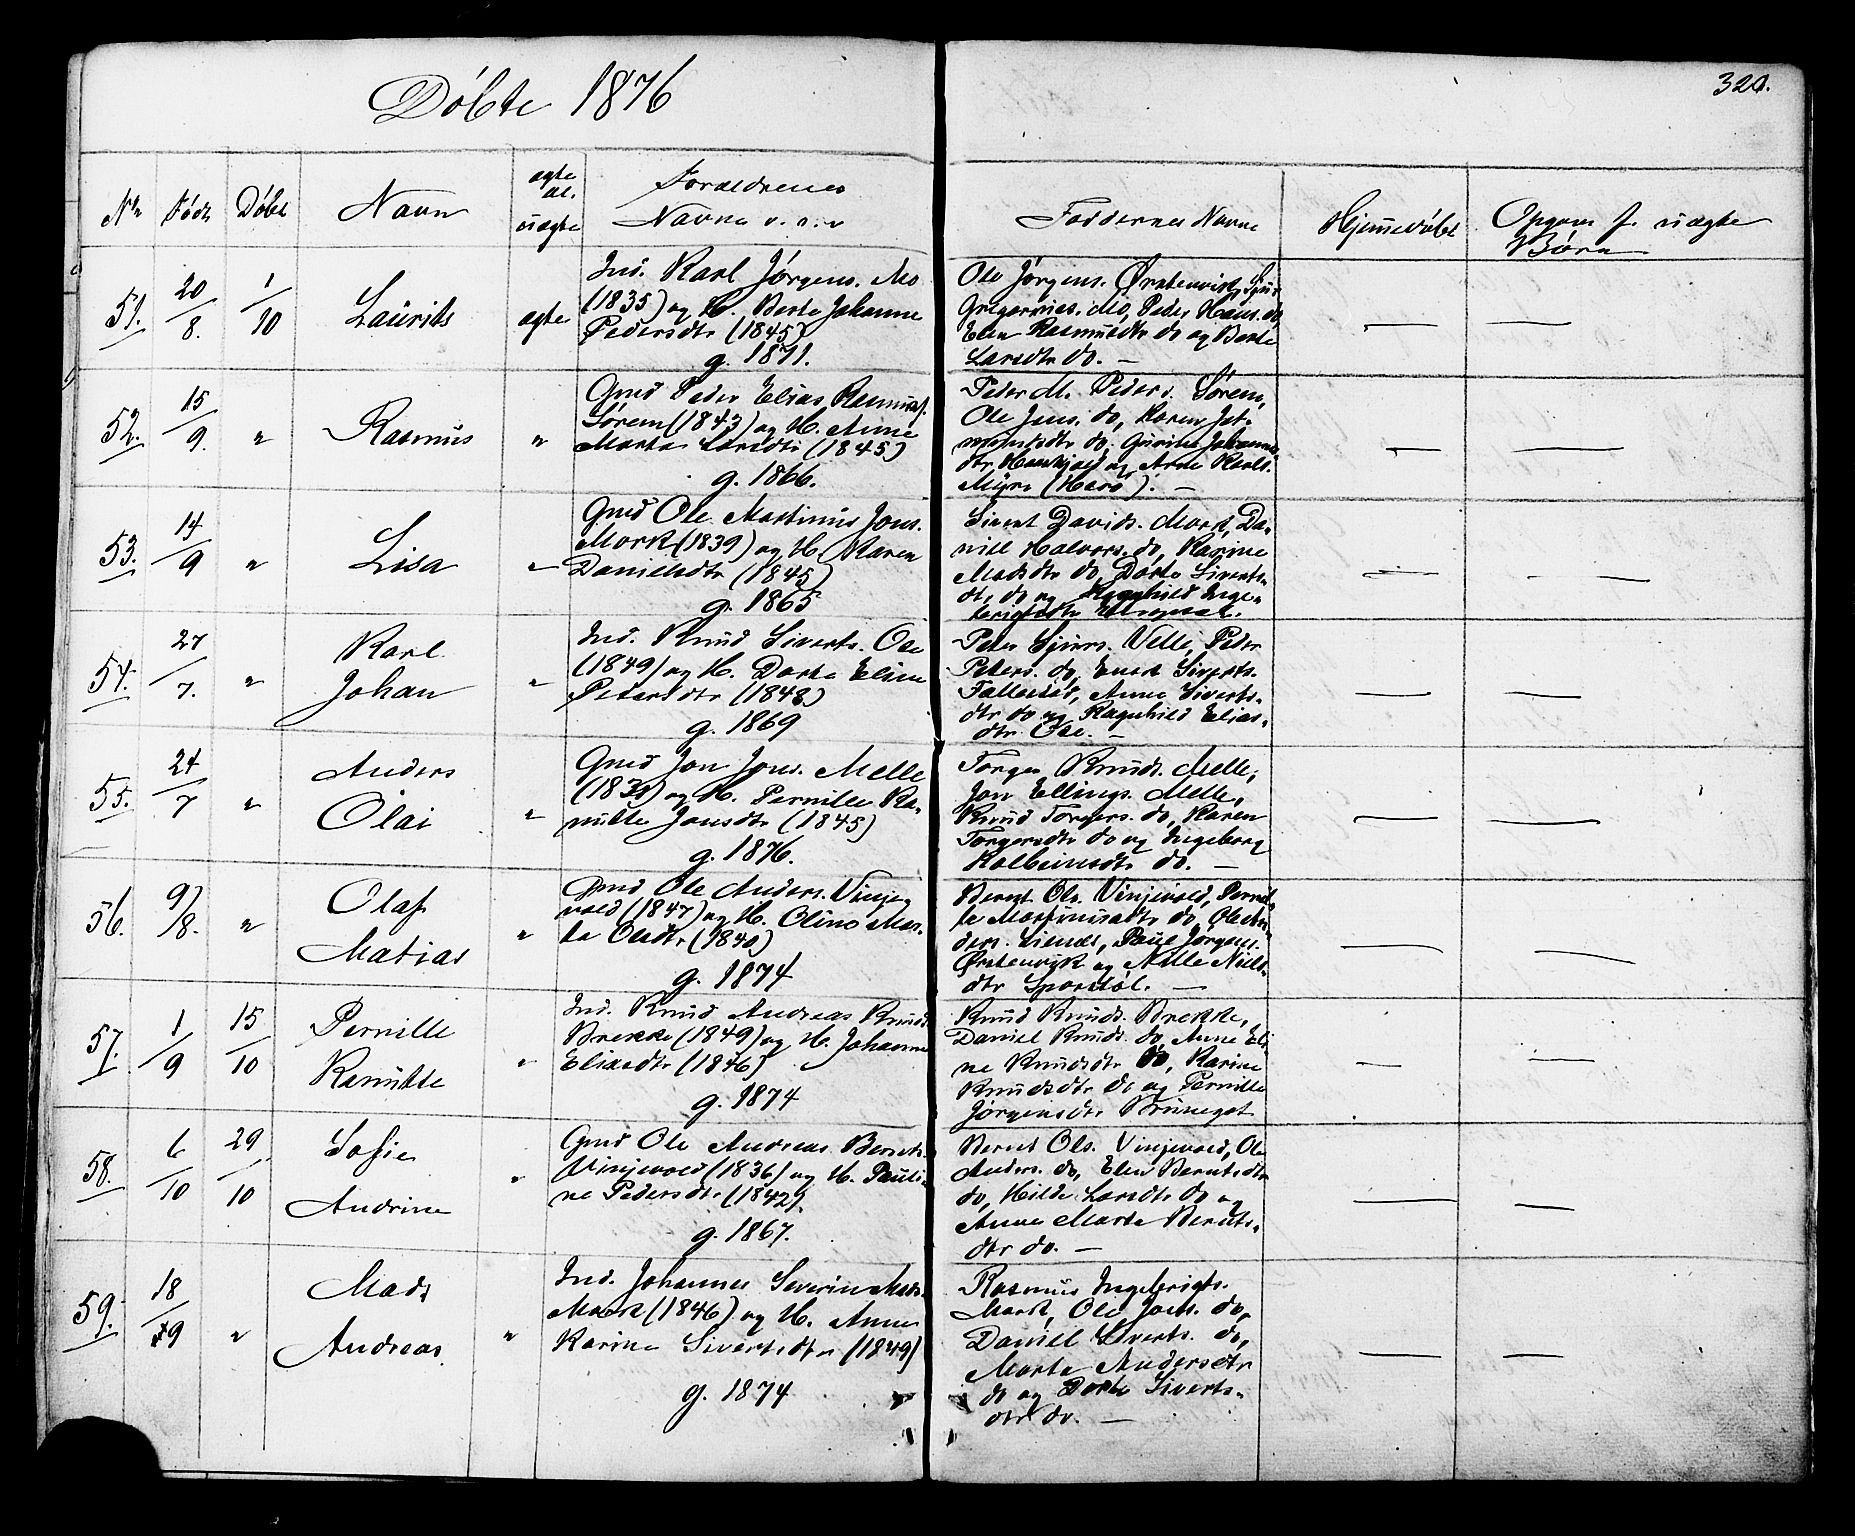 Döbte 1876
320.
No
Födt
Döbt
Navn
ægte
el.
uægte
Forældrenes
Navne v. s. v
Faddernes Navne
Hjemmedöbt
Opgave f. uægte
Börn
51.
20/8.
1/10
Laurits
ægte
Ind. Karl Jörgens. Mo
(1835) og H. Berte Johanne
Pedersdtr (1845)
g. 1871.
Ole Jörgens. Ørstenvik,
Gregorius. Mo, Peder Hans. do,
Elen Rasmusdtr do og Berte
Larsdtr do. —
52.
15/9.
"
Rasmus
"
Gmd Peder Elias Rasmuss.
Sörem (1843) og H. Anne
Marta Larsdtr (1845)
g. 1866.
Peder M. Peders. Sörem,
Ole Jons. do, Karen Jet-
mundsdtr do, Gurine Johannes
dtr og Arne Karls.
Myre (Harö). —
53.
14/9
"
Lisa
"
Gmd Ole Martinus Jons.
Mork (1839) og H. Karen
Danielsdtr (1845)
g. 1865
Sivert Davids. Mork, Da-
niel Halvors. do, Karine
Madsdtr do, Dorte Siverts-
dtr do og Ragnhild Inge-
brigtsdtr
54.
27/7.
"
Karl
Johan
"
Ind. Knud Siverts. Ose
(1849) og H. Dorte Eline
Petersdtr (1848)
g. 1869
Peter Velle, Peder
Peters. do, Enok Siverts.
Anne Siverts-
dtr do og Ragnhild Elias-
dtr Ose. —
55.
24/7
"
Anders
Olai
"
Gmd Jon Jons. Melle
og H. Pernille Ka-
nutte Jonsdtr (1845)
g. 1876.
Torger Knuds. Melle,
Jon Ellings. Melle,
Knud Torgers. do, Karen
Torgersdtr do og Ingeborg
Kolbeinsdtr do. —
56.
9/8.
"
Olaf
Matias
"
Gmd Ole Anders. Vinje-
vold (1847) og H. Oline Mar-
ta Olsdtr (1840)
g. 1874
Bernt Ols. Vinjevold, Pernil-
le Martinusdtr do, Ole An-
ders. Paul Jörgens.
Ørstenvik og Nille Niels-
dtr
57.
1/9
15/10
Pernille
Kanutte
"
Ind. Knud Andreas Knuds.
Brekke (1849) og H. Johanne
Eliasdtr (1846)
g. 1874
Knud Knuds. Brekke,
Daniel Knuds. do, Anne Eli-
ne Knudsdtr do, Karine
Knudsdtr do og Pernille
Jörgensdtr Bruneget
58.
6/10
29/10
Sofie
Andrine
"
Gmd Ole Andreas Bernts.
Vinjevold (1836) og H. Pauli-
ne Pedersdtr (1842).
g. 1867.
Bernt Ols. Vinjevold, Ole
Anders. do, Elen Berntsdtr
do, Hilde Larsdtr do og
Anne Marte Bernts-
dtr do. —
59.
18/9
"
Mads
Andreas
"
Ind. Johannes Severin Mads.
Mork (1846) og H. Anne
Karine Sivertsdtr (1849)
g. 1874
Rasmus Ingebrigts.
Mork, Ole Jons. do,
Daniel Siverts. do,
Marte Andersdtr
do og Dorte Siverts-
dtr do. —